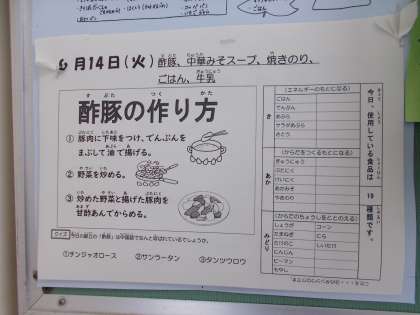 6月14日(火) 酢豚、中華みそスープ、焼きのり、
ごはん、牛乳
酢豚の作り方
① 豚肉に下味をつけ、でんぷんを
まぶして油で揚げる。
② 野菜を炒める。
③ 炒めた野菜と揚げた豚肉を
甘酢あんでからめる。
クイズ 今日の献立の「酢豚」は中国語でなんと呼ばれているでしょうか。
①チンジャオロース ②サンラータン ③タンツウロウ
今日、使用している食品は 19 種類です。
(エネルギーのもとになる)
き
ごはん
でんぷん
あぶら
サラダあぶら
さとう
(からだをつくるもとになる)
あか
ぎゅうにゅう
ぶたにく
けいにく
あかみそ
やきのり
(からだのちょうしをととのえる)
みどり
しょうが コーン
たまねぎ にら
たけのこ しいたけ
にんじん
ピーマン
もやし